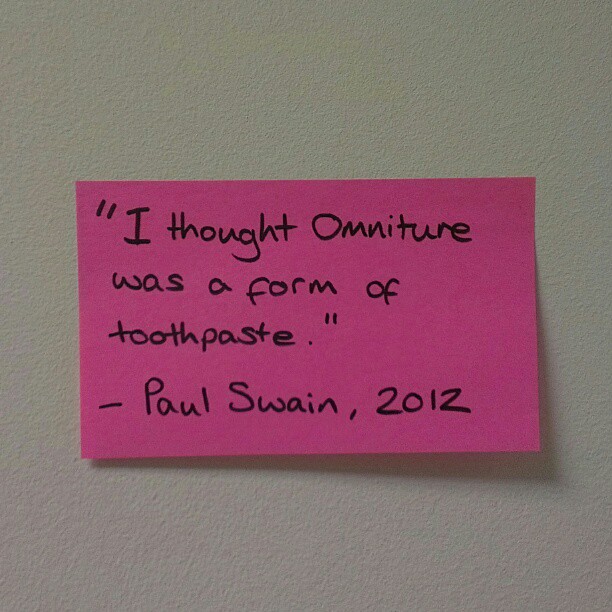 "I thought Omniture
was a form of
toothpaste."
- Paul Swain, 2012